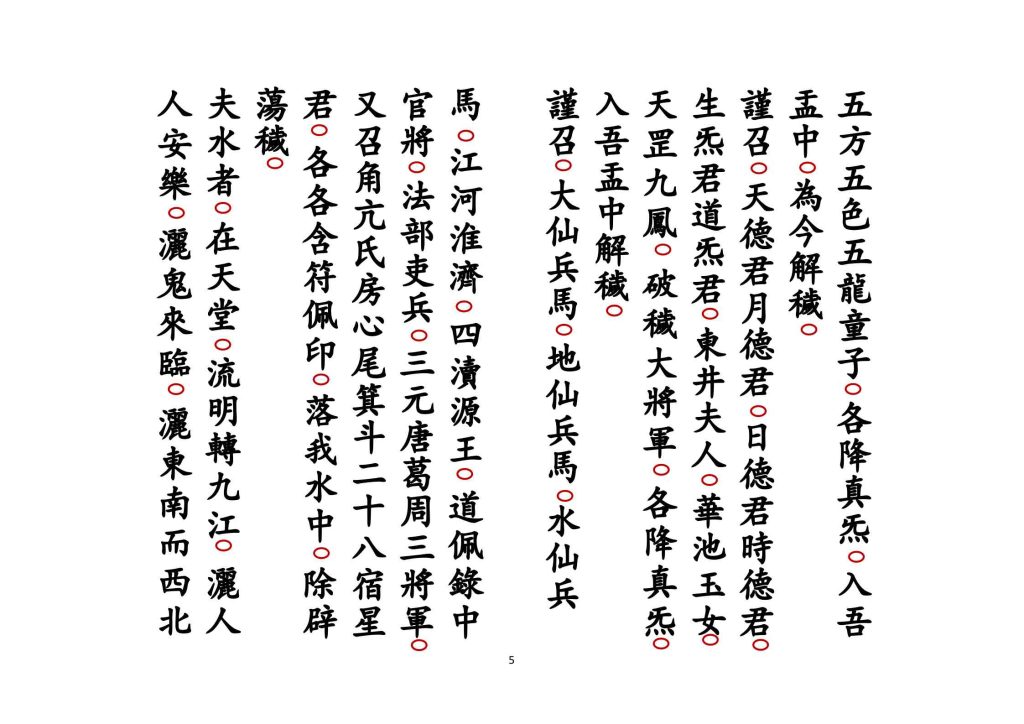 五方五色五龍童子○各降真炁○入吾
盂中○為今解穢○
謹召○天德君月德君○日德君時德君○
生炁君道炁君○東井夫人○華池玉女○
天罡九鳳○破穢大將軍○各降真炁○
入吾盂中解穢○
謹召○大仙兵馬○地仙兵馬○水仙兵
馬○江河淮濟○四瀆源王○道佩錄中
官將○法部吏兵○三元唐葛周三將軍○
又召角亢氐房心尾箕斗二十八宿星
君○各各含符佩印○落我水中○除辟
蕩穢○
夫水者○在天堂○流明轉九江○灑人
人安樂○灑鬼來臨○灑東南而西北
5